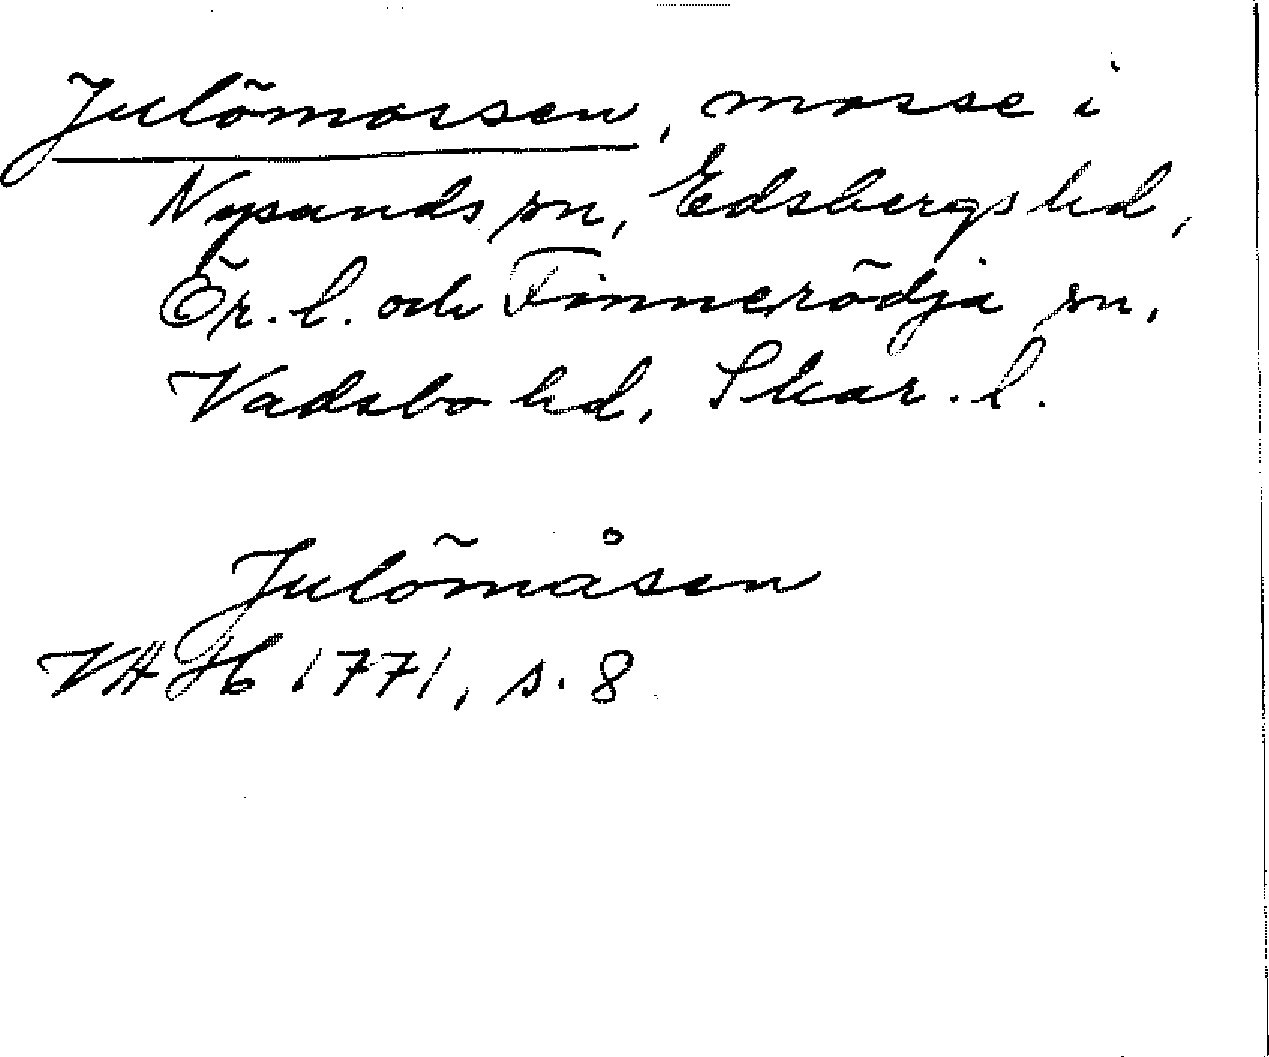 Julömossen, mosse i
Nysunds sn, Edsbergs hd,
Ör. l. och Finnerödja sn,
Vadsbo hd, Skar. l.
Julömåsen
VA H 1771, s. 8